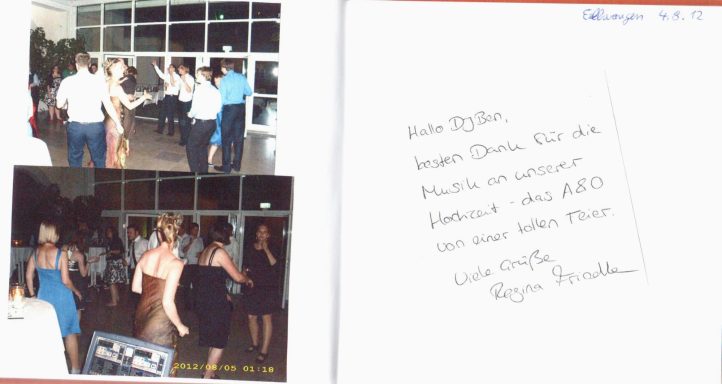 Ellwangen 4.8.12
Hallo DJ Ben,
besten Dank für die
Musik an unserer
Hochzeit - das A&O
von einer tollen Feier.
Viele Grüße
Regina
2012/08/05 01:18